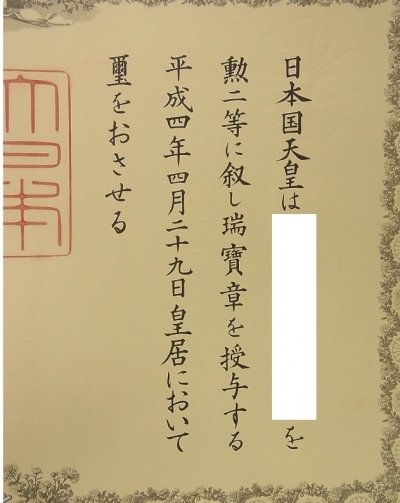 日本国天皇は を
勲二等に叙し瑞寶章を授与する
平成四年四月二十九日皇居において
璽をおさせる
大日本